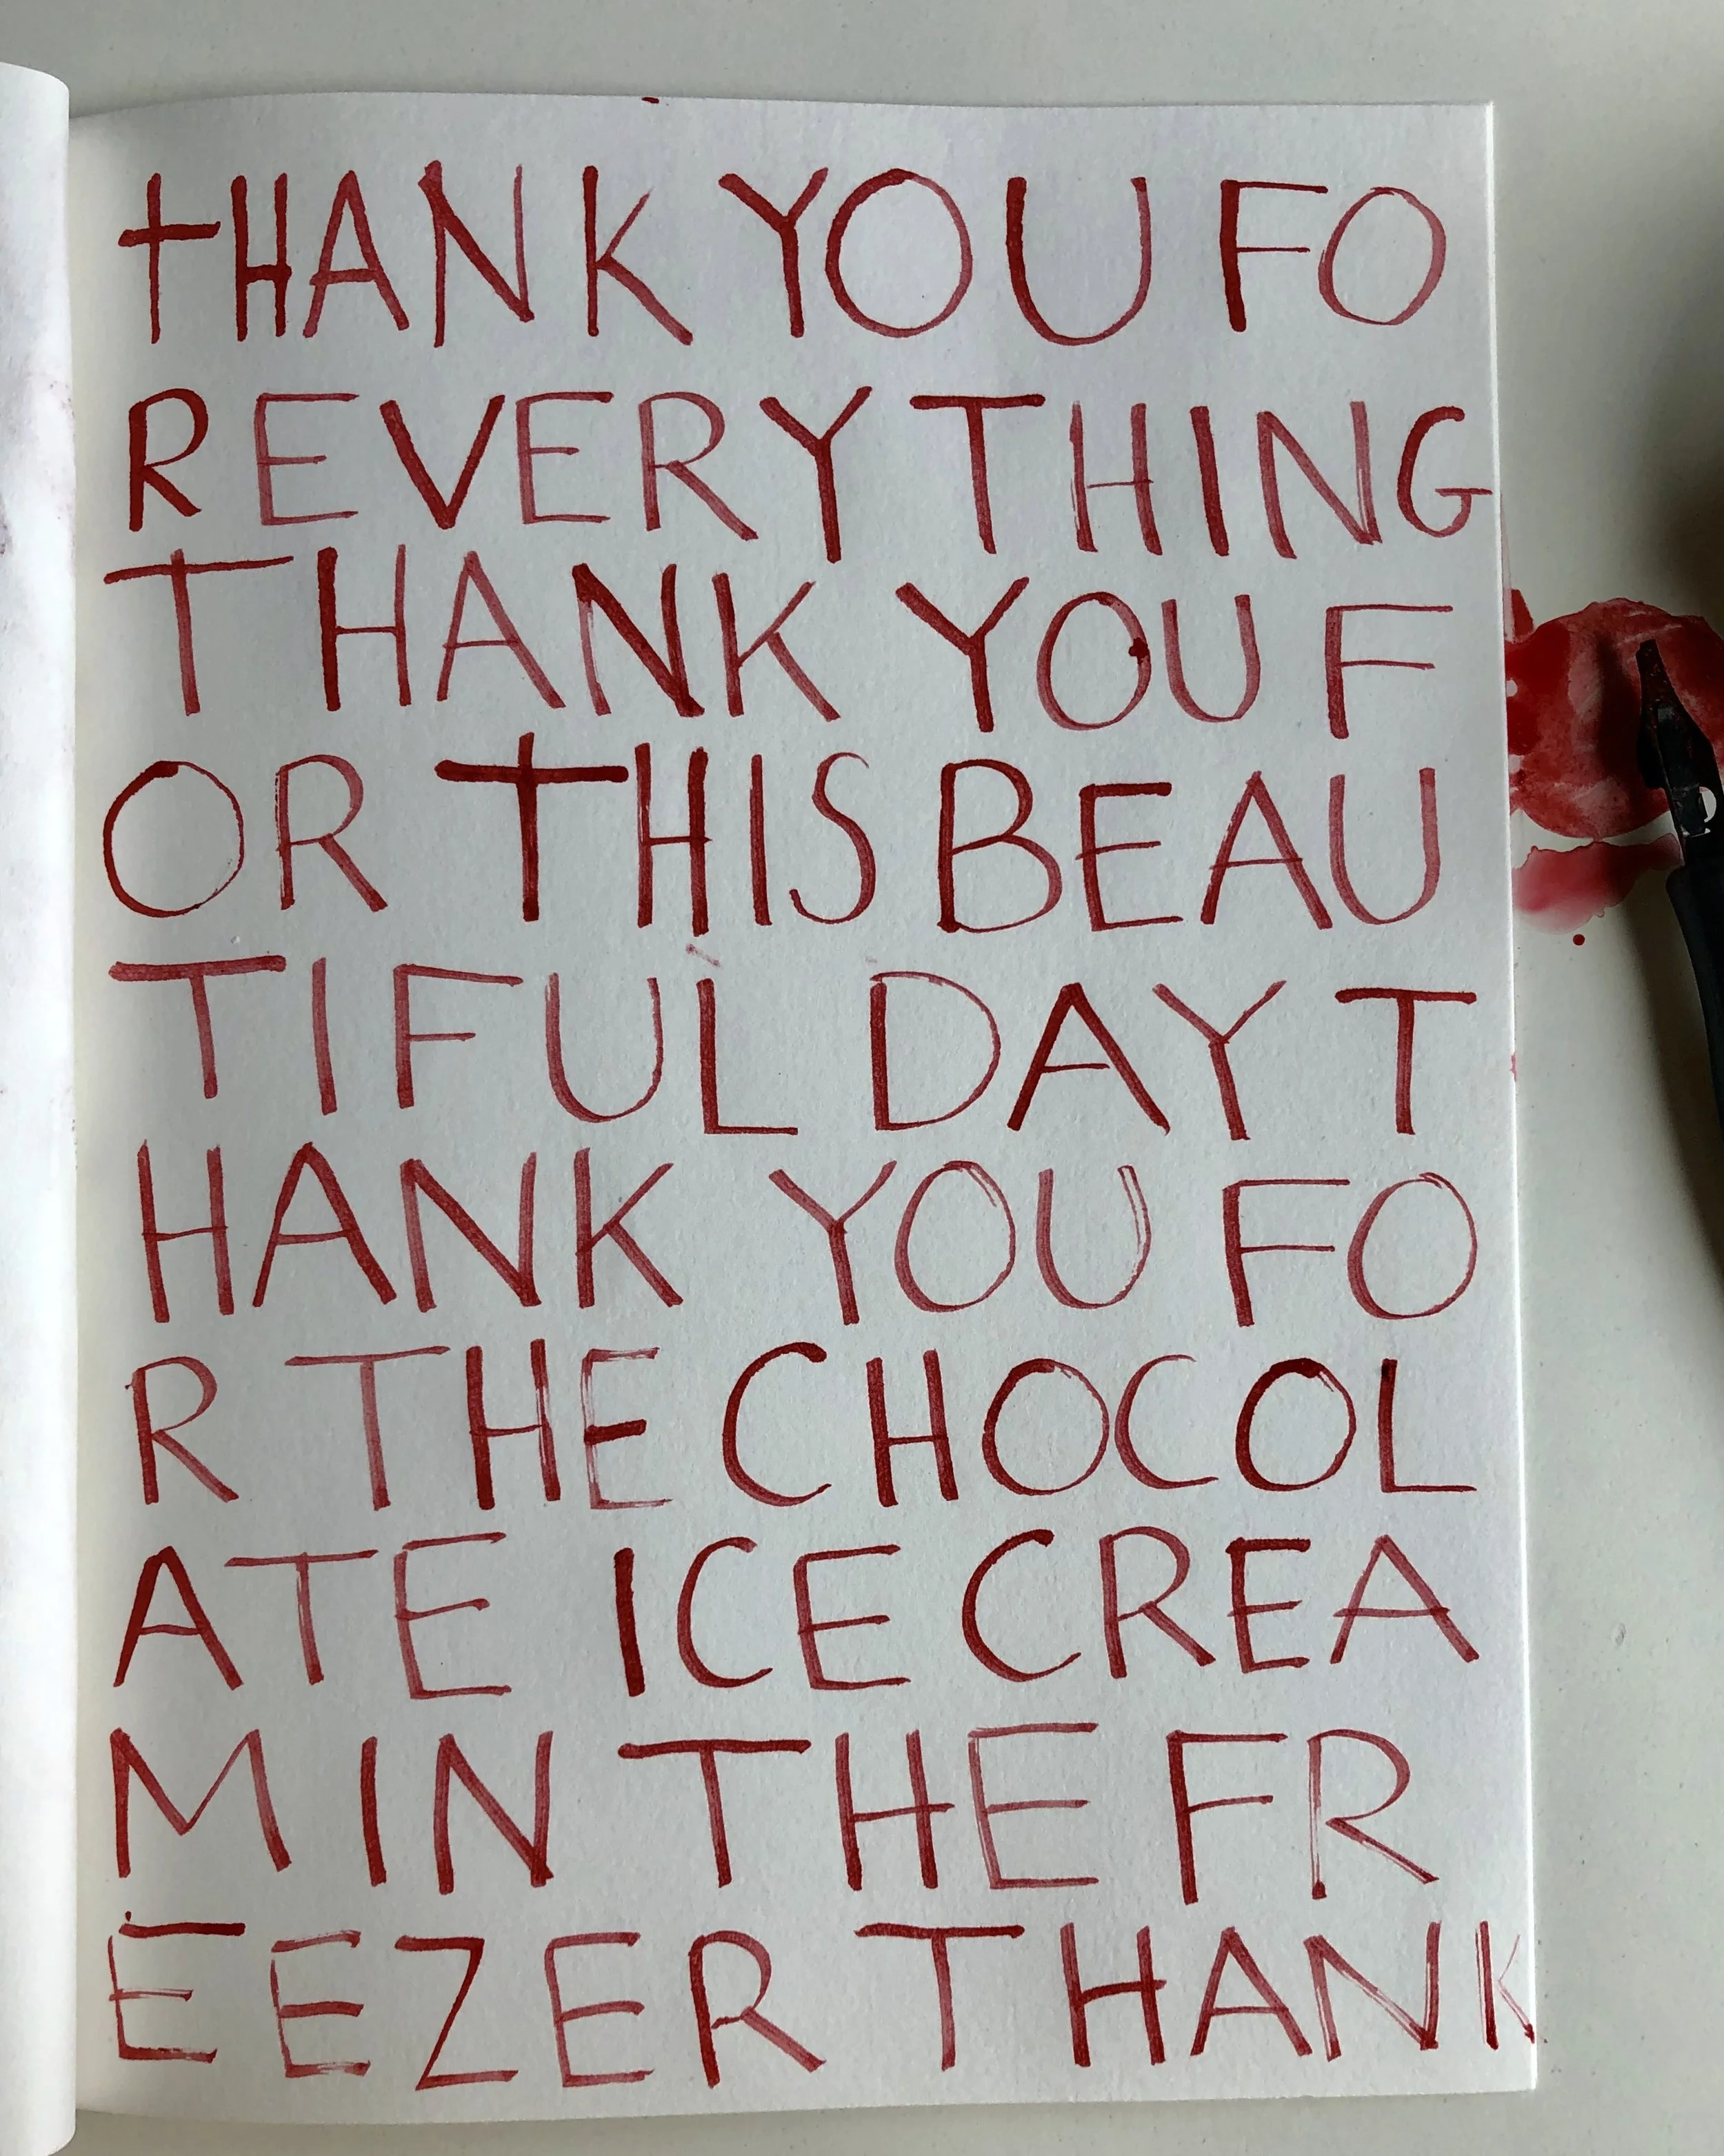 tHANK YOU FO
REVERYTHING
THANK YOU F
OR THIS BEAU
TIFUL DAY T
HANK YOU FO
R THE CHOCOL
ATE ICE CREA
M IN THE FR
EEZER THANK